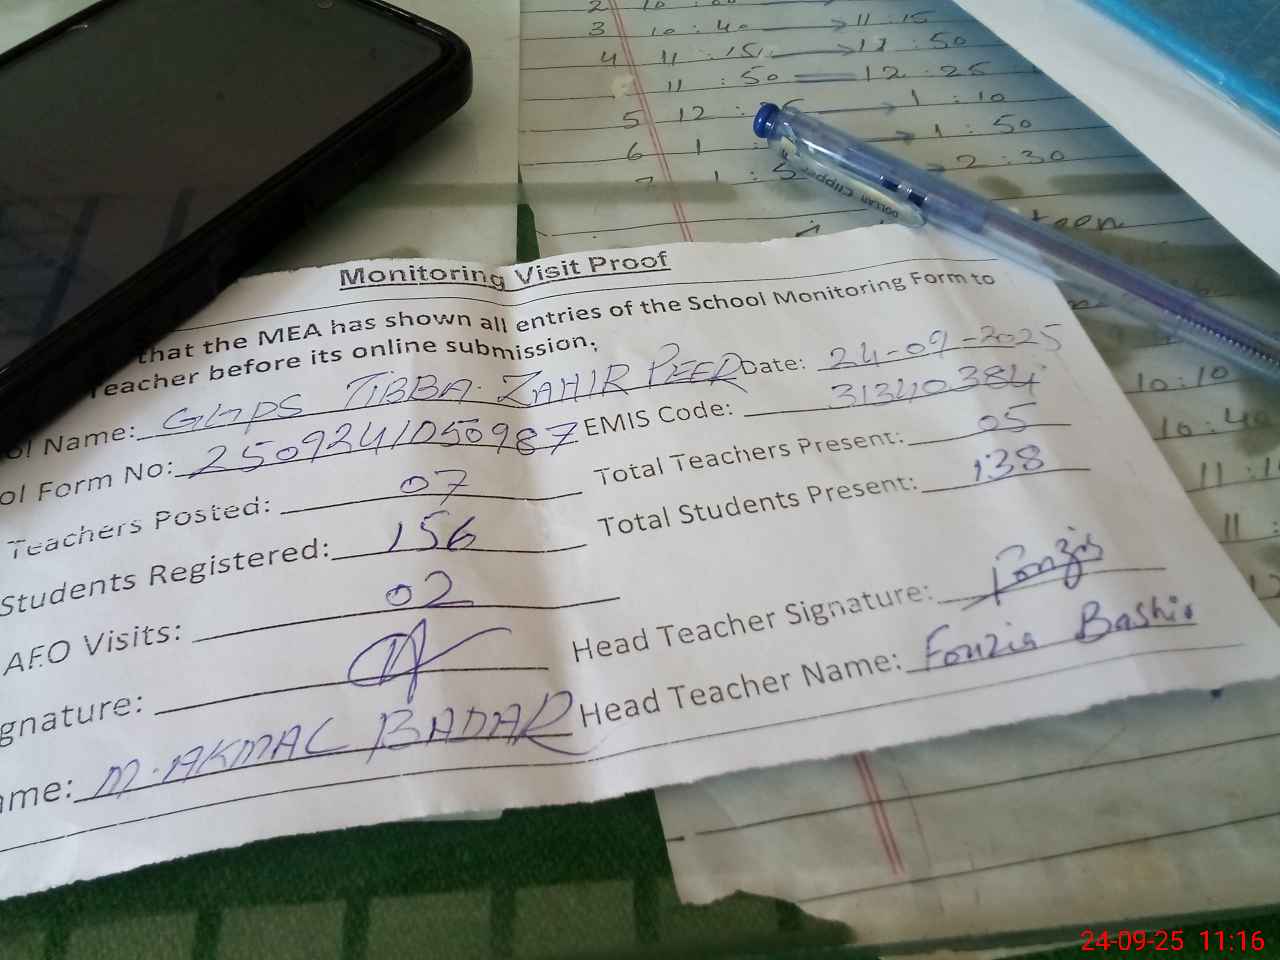 2 10 :
3 10 : 40 → 11 : 15
4 11 : 15 → 11 : 50
11 : 50 — 12 : 25
5 12 : → 1 : 10
6 1 : → 1 : 50
1 : 5 → 2 : 30
DOLLAR Clipper
Monitoring Visit Proof
that the MEA has shown all entries of the School Monitoring Form to
Teacher before its online submission.
ol Name: GGPS TIBBA ZAHIR PEER Date: 24-09-2025
ol Form No: 2509241050987 EMIS Code: 31340384
Teachers Posted: 07 Total Teachers Present: 05
Students Registered: 156 Total Students Present: 138
AEO Visits: 02
gnature: Head Teacher Signature: Fouzia
ame: M. AKMAL BADAR Head Teacher Name: Fouzia Bashir
10:10
10:40
11:1
11:
24-09-25 11:16